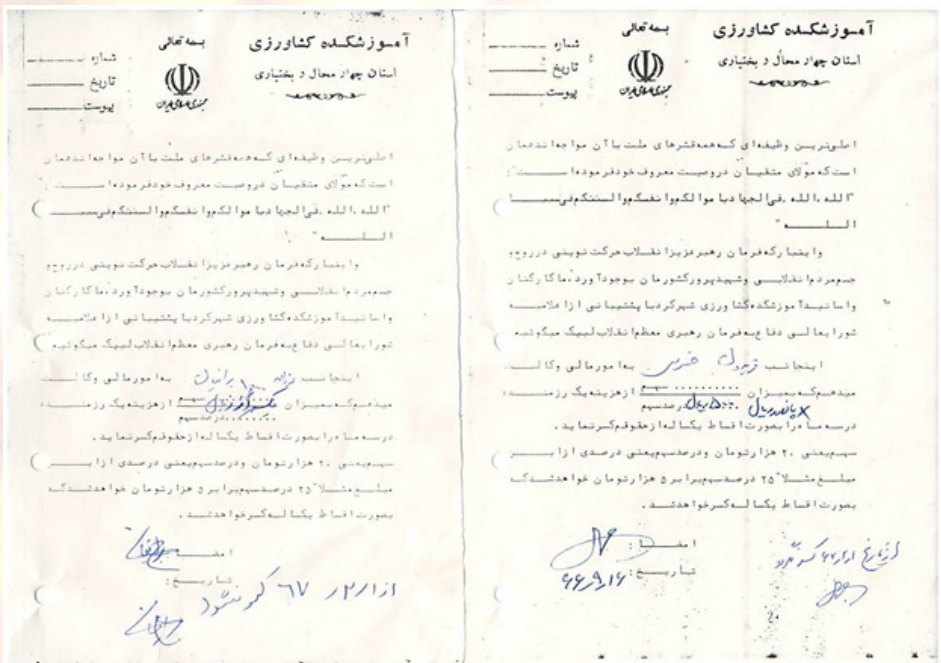 آموزشکده کشاورزی
استان چهار محال و بختیاری
بسمه تعالی
جمهوری اسلامی ایران
شماره
تاریخ
پیوست
اصلی‌ترین وظیفه‌ای که همه قشرهای ملت با آن مواجه‌اند همان
است که مولای متقیان در وصیت معروف خود فرموده است :
"الله، الله، فی الجهاد باموالکم وانفسکم والسنتکم فی سبیل
الله "
و اینبار که فرمان رهبر عزیز انقلاب حرکت نوینی در روح و
جسم مردم انقلابی و شهید پرور کشورمان بوجود آورد، ما کارکنان
و اساتید آموزشکده کشاورزی شهرکرد با پشتیبانی از اعلامیه
شورایعالی دفاع به فرمان رهبری معظم انقلاب لبیک میگوئیم
اینجانب به امور مالی وکالت
میدهم که بمیزان ۵۰۰ ریال درصد سهم از هزینه یک رزمنده
در سه ماه را بصورت اقساط یکساله از حقوقم کسر نماید .
سهم یعنی ۲۰ هزار تومان و درصد سهم یعنی درصدی از این
مبلغ مثلا" ۲۵ درصد سهم برابر ۵ هزار تومان خواهد شد که
بصورت اقساط یکساله کسر خواهد شد .
امضاء :
تاریخ : ۶۶،۹،۱۶
آموزشکده کشاورزی
استان چهار محال و بختیاری
بسمه تعالی
جمهوری اسلامی ایران
شماره
تاریخ
پیوست
اصلی‌ترین وظیفه‌ای که همه قشرهای ملت با آن مواجه‌اند همان
است که مولای متقیان در وصیت معروف خود فرموده است :
"الله، الله، فی الجهاد باموالکم وانفسکم والسنتکم فی سبیل
الله "
و اینبار که فرمان رهبر عزیز انقلاب حرکت نوینی در روح و
جسم مردم انقلابی و شهید پرور کشورمان بوجود آورد، ما کارکنان
و اساتید آموزشکده کشاورزی شهرکرد با پشتیبانی از اعلامیه
شورایعالی دفاع به فرمان رهبری معظم انقلاب لبیک میگوئیم
اینجانب به امور مالی وکالت
میدهم که بمیزان درصد سهم از هزینه یک رزمنده
در سه ماه را بصورت اقساط یکساله از حقوقم کسر نماید .
سهم یعنی ۲۰ هزار تومان و درصد سهم یعنی درصدی از این
مبلغ مثلا" ۲۵ درصد سهم برابر ۵ هزار تومان خواهد شد که
بصورت اقساط یکساله کسر خواهد شد .
امضاء :
تاریخ :
از ۶۷ کسر شود